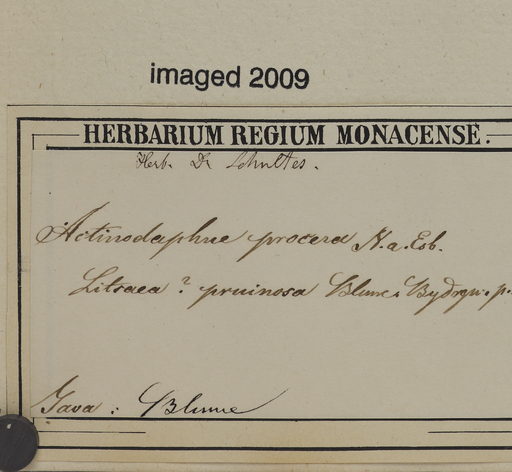 imaged 2009
HERBARIUM REGIUM MONACENSE.
Herb. Dr Schultes.
Actinodaphne procera N.a.Esb.
Litsaea? pruinosa Blume. Bydrgn. p.
Java: Blume